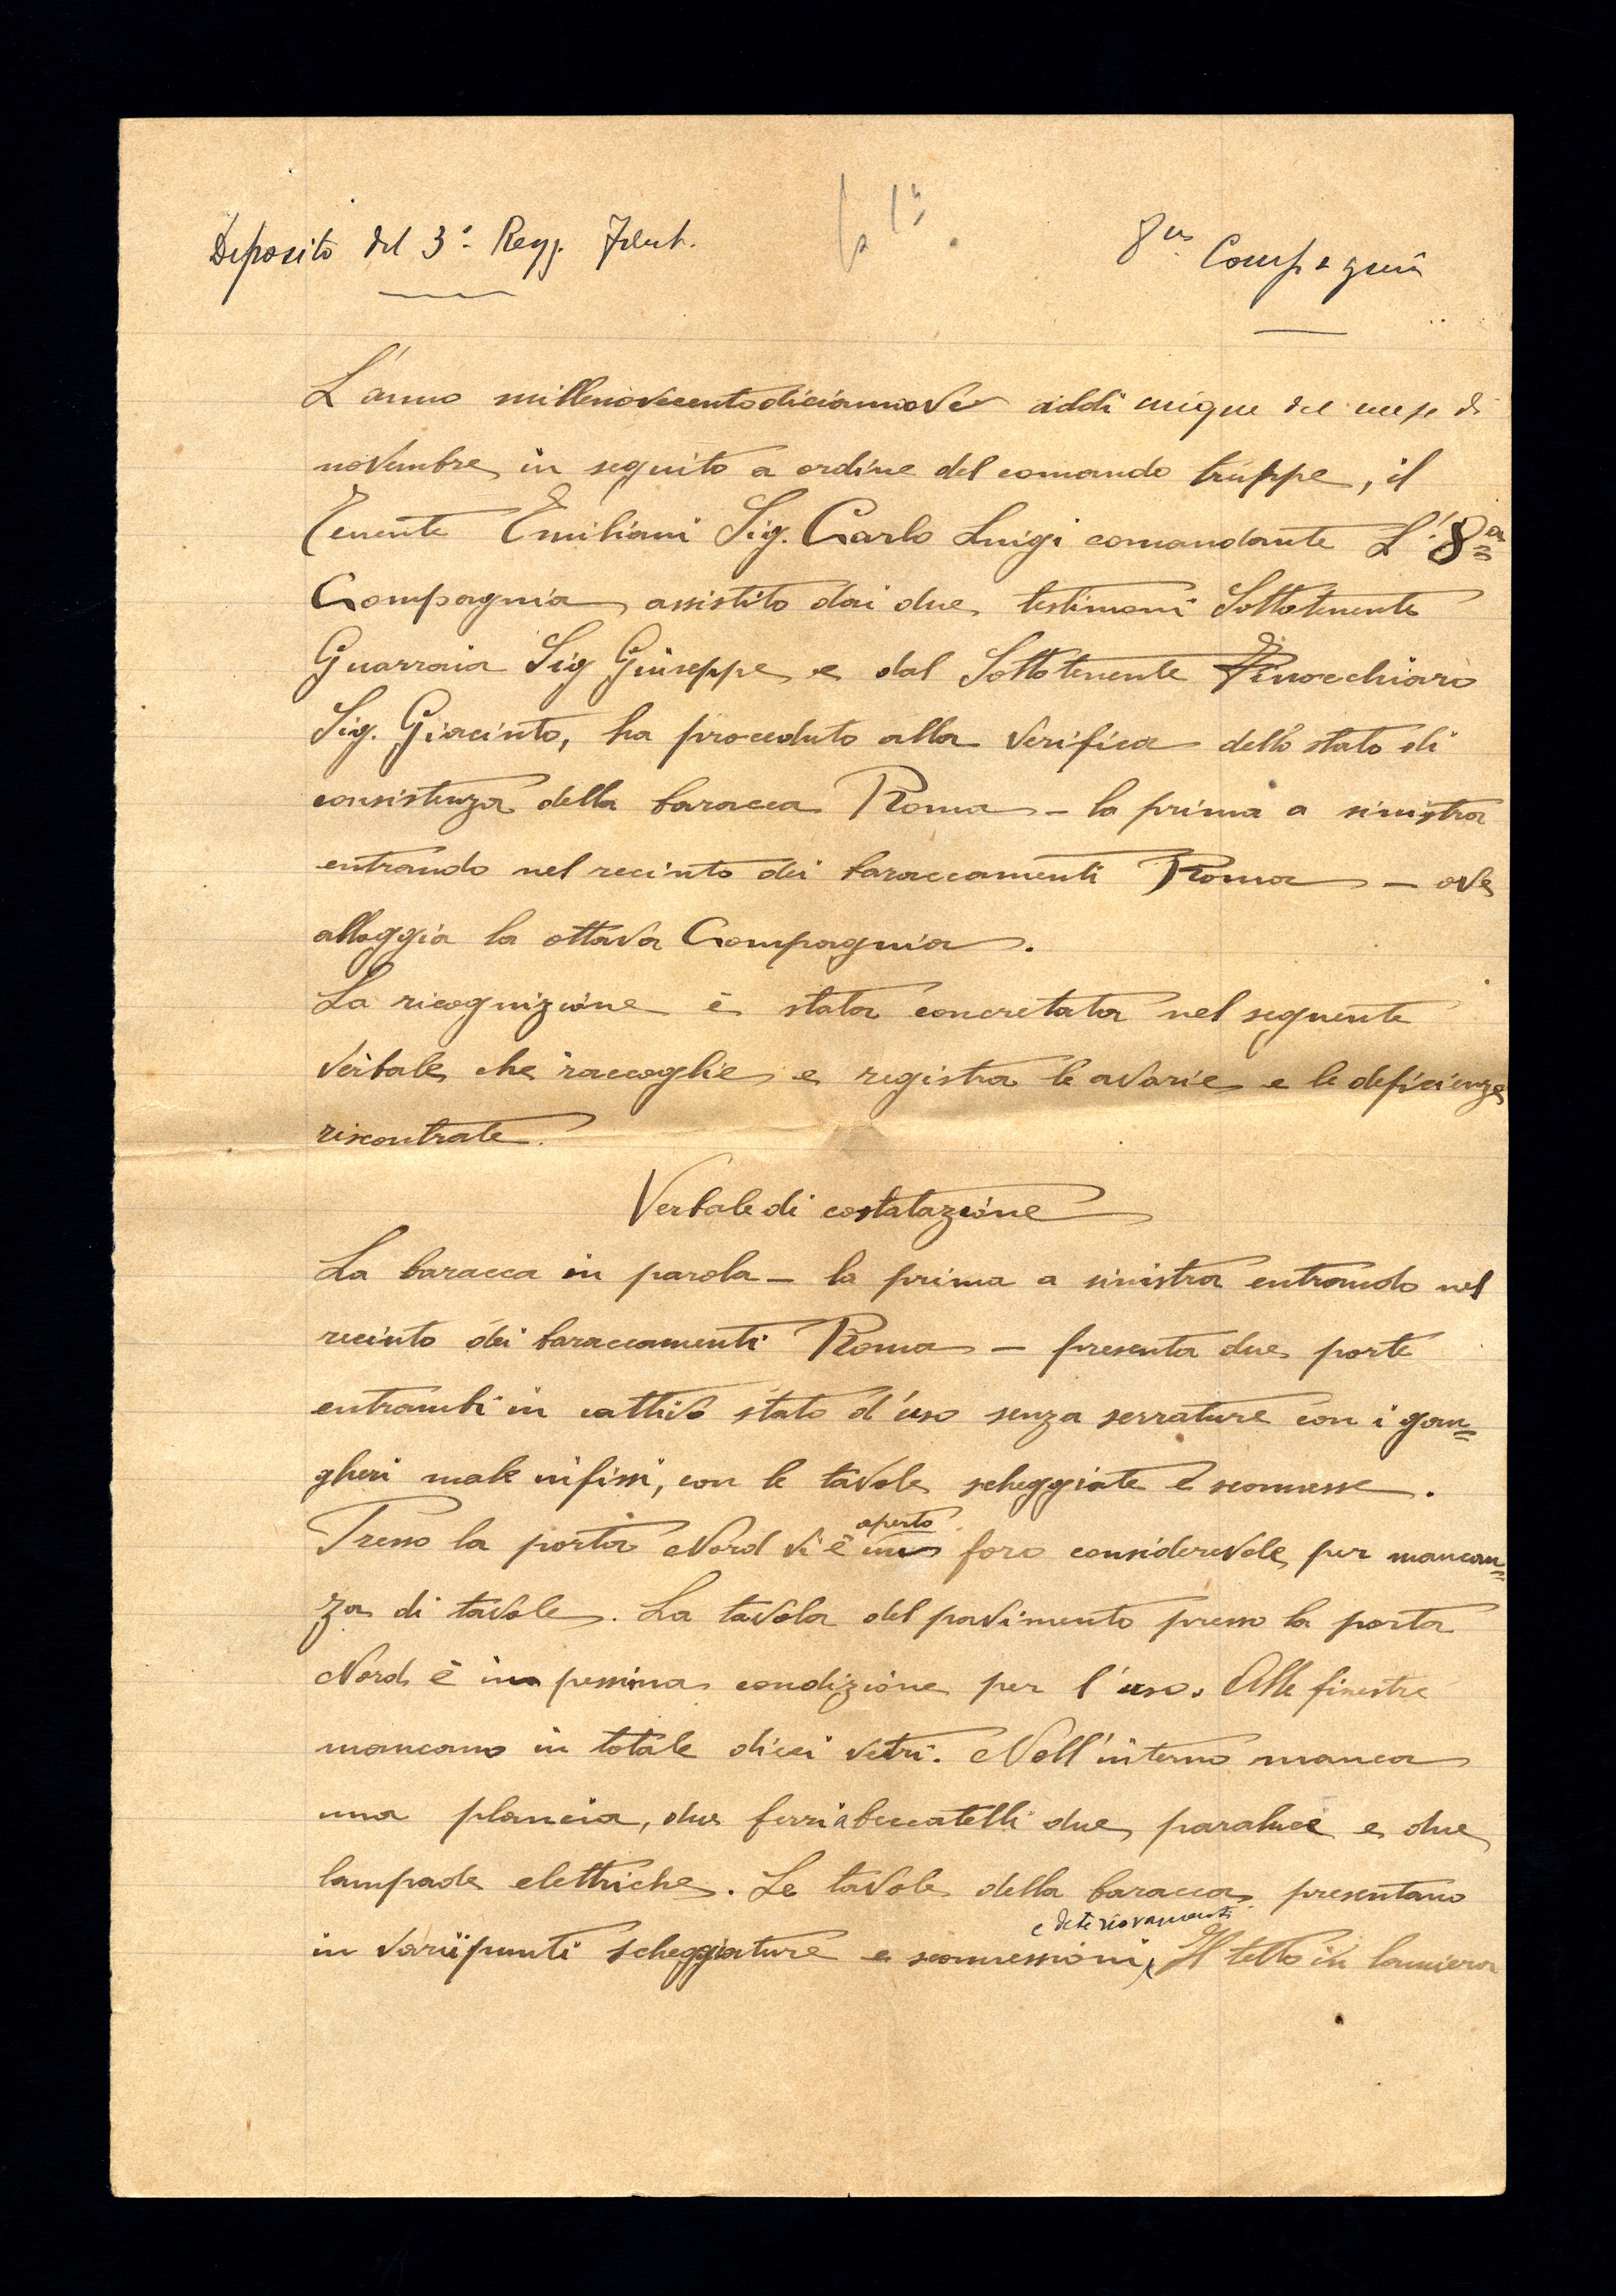 Deposito del 3° Regg. Fant.
8ª Compagnia
L'anno millenovecentodiciannove addi cinque del mese di
novembre in seguito a ordine del comando truppe, il
Tenente Emiliani Sig. Carlo Luigi comandante L'8ª
Compagnia assistito dai due testimoni Sottotenente
Guarraia Sig Giuseppe e dal Sottotenente Finocchiaro
Sig. Giacinto, ha proceduto alla verifica dello stato di
consistenza della baracca Roma - la prima a sinistra
entrando nel recinto dei baraccamenti Roma - ove
alloggia la ottava Compagnia.
La ricognizione è stata concretata nel seguente
verbale che raccoglie e registra le avarie e le deficienze
riscontrate.
Verbale di costatazione
La baracca in parola - la prima a sinistra entrando nel
recinto dei baraccamenti Roma - presenta due porte
entrambi in cattivo stato d'uso senza serrature con i gan=
gheri male infissi, con le tavole scheggiate e sconnesse.
Presso la porta Nord vi è aperto un foro considerevole per mancan=
za di tavole. La tavola del pavimento presso la porta
Nord è in pessima condizione per l'uso. Alle finestre
mancano in totale dieci vetri. Nell'interno manca
una plancia, due ferri a beccatelli due paraluce e due
lampade elettriche. Le tavole della baracca presentano
in varii punti scheggiature e sconnessioni e deterioramenti. Il tetto in lamiera